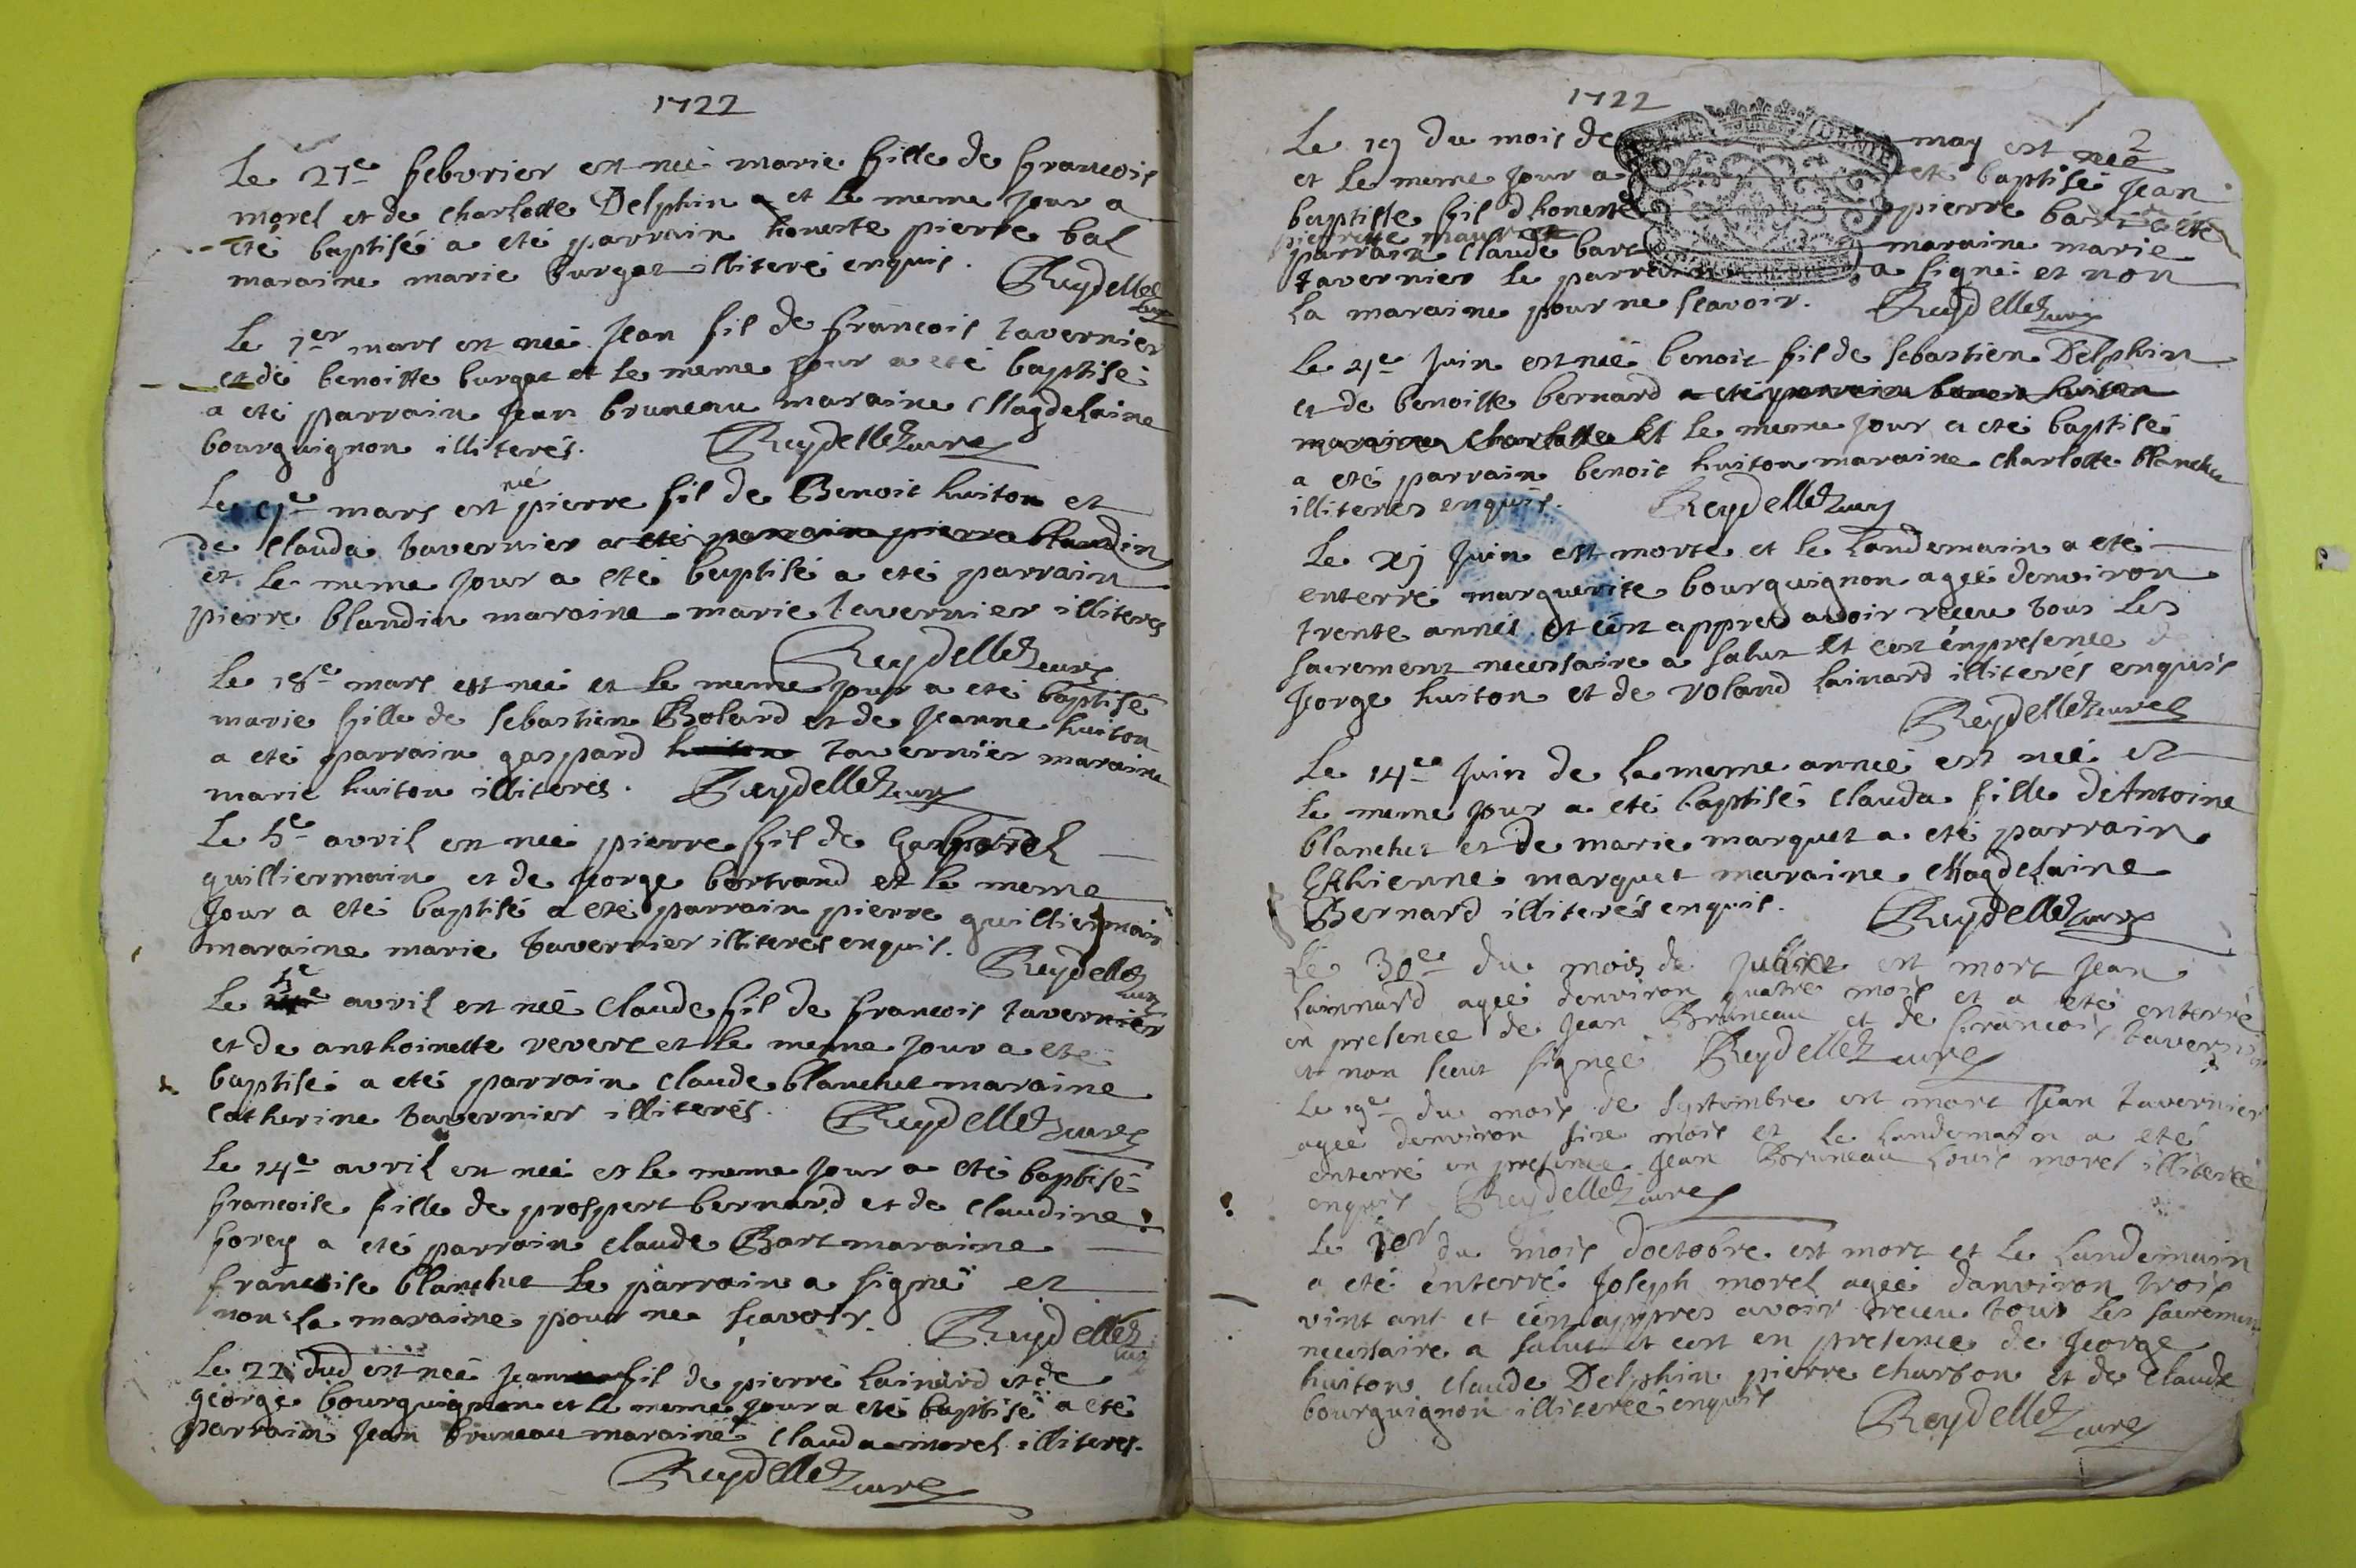 1722
Le 27e febvrier est neé marie fille de francois
morel et de charlotte Delphin et le meme jour a
eté baptisé a eté parrain honeste pierre bal
maraine marie burgat illiteré enquis. Reydellet
curé
Le 1er mars est neé Jean fil de francois tavernier
et de benoitte burgat et le meme jour a eté baptisé
a eté parrain Jean bruneau maraine Magdelaine
bourguignon illiterés. Reydellet curé
né
Le mars est pierre fil de Benoit huiton et
de Clauda tavernier a eté parrain pierre blandin
et le meme jour a eté baptisé a eté parrain
pierre blandin maraine marie tavernier illiteres
Reydellet curé
Le 18e mars est neé et le meme jour a eté baptisé
marie fille de sebastien Bolard et de Jeanne huiton
a eté parrain gaspard huiton tavernier maraine
marie huiton illiterés. Reydellet curé
Le 5e avril est neé pierre fil de
guilliermain et de jorge bertrand et le meme
Jour a eté baptisé a eté parrain pierre guilliermain
maraine marie tavernier illiterés enquis. Reydellet
curé
Le avril est neé Claude fil de francois tavernier
et de anthoinette revert et le meme jour a eté
baptisé a eté parrain Claude blanchet maraine
Catherine tavernier illiterés. Reydellet curé
Le 14e avril est neé et le meme jour a eté baptisé
francoise fille de prospert bernard et de Claudine
forey a eté parrain claude Bart maraine
francoise blanchet le parrain a signé et
non la maraine pour ne scavoir. Reydellet
curé
Le 22 dud est neé Jean fil de pierre Lainard et de
george bourguignon et le meme jour a eté baptisé a eté
parrain Jean bruneau maraine Clauda morel illiteres.
Reydellet curé
1722
2
Le 19 du mois de may est neé
et le meme jour a eté baptisé Jean
baptiste fil d honeste pierre bart et de
pierrette a eté
parrain Claude bart maraine marie
tavernier le parrain a signé et non
la maraine pour ne scavoir. Reydellet curé
Le 21e Juin est neé benoit fil de sebastien Delphin
et de benoitte bernard a eté parrain benoit huiton
maraine Charlotte Et le meme jour a eté baptisé
a eté parrain benoit huiton maraine Charlotte blanchet
illiterés enquis. Reydellet curé
Le xj Juin est morte et le landemain a eté
enterré marguerite bourguignon ageé denviron
trente annés et cest appres avoir receu tous les
sacrement necessaire a salut Et cest enpresence de
jorge huiton et de roland lainard illiterés enquis
Reydellet curé
Le 14e Juin de la meme anneé est neé et
le meme jour a eté baptisé Clauda fille dAntoine
blanchet et de marie marquet a eté parrain
Esthienne marquet maraine Magdelaine
Bernard illiterés enquis. Reydellet curé
Le 30e du mois de Julliet est mort Jean
Lainnard ageé denviron quatre mois et a eté enterré
en presence de Jean Bruneau et de francois tavernier
et non sceut signeé Reydellet curé
Le 19e du mois de septembre est mort Jean tavernier
ageé denviron six mois et le landemain a eté
enterré en presence Jean Bruneau Louis morel illitereé
enquis Reydellet curé
Le 1er du mois doctobre est mort et le landemain
a eté enterré Joseph morel ageé danviron trois
vint ant et cest appres avoir receu tous les sacremen
necessaire a salut et cest en presence de George
huiton Claude Delphin pierre Charbon et de Claude
bourguignon illitereé enquis Reydellet curé